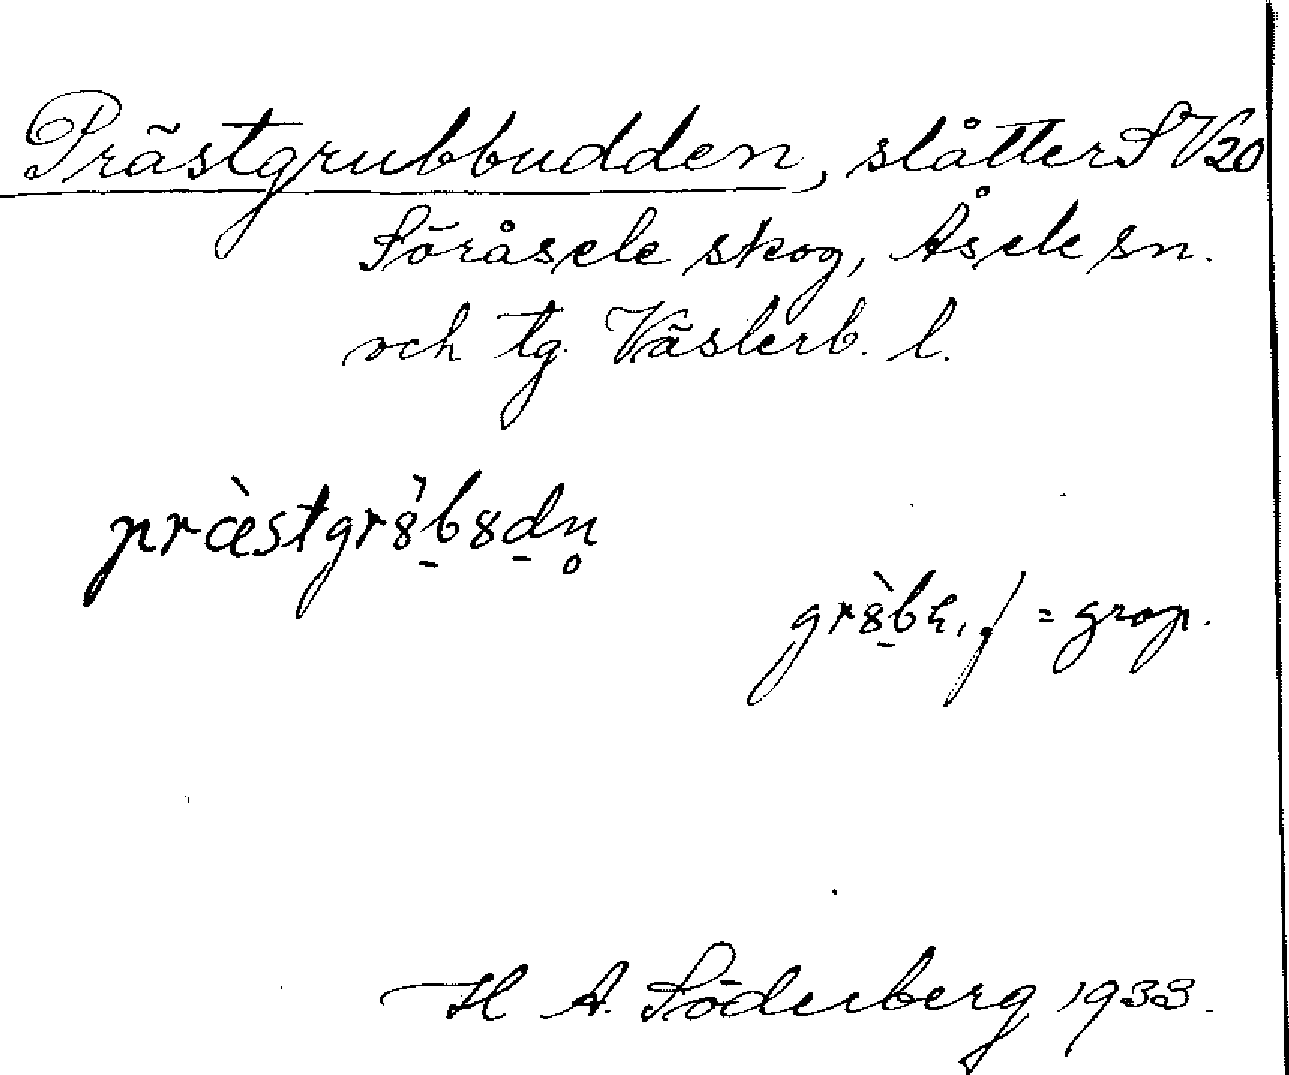 Prästgrubbudden, slåtter S V20
Söråsele skog, Åsele sn.
och tg. Västerb. l.
præ̀stgrꞷ̀b̠ꞷd̠n̥
grꞷ̀b̠ɛ, f = grop.
H A. Söderberg 1933.